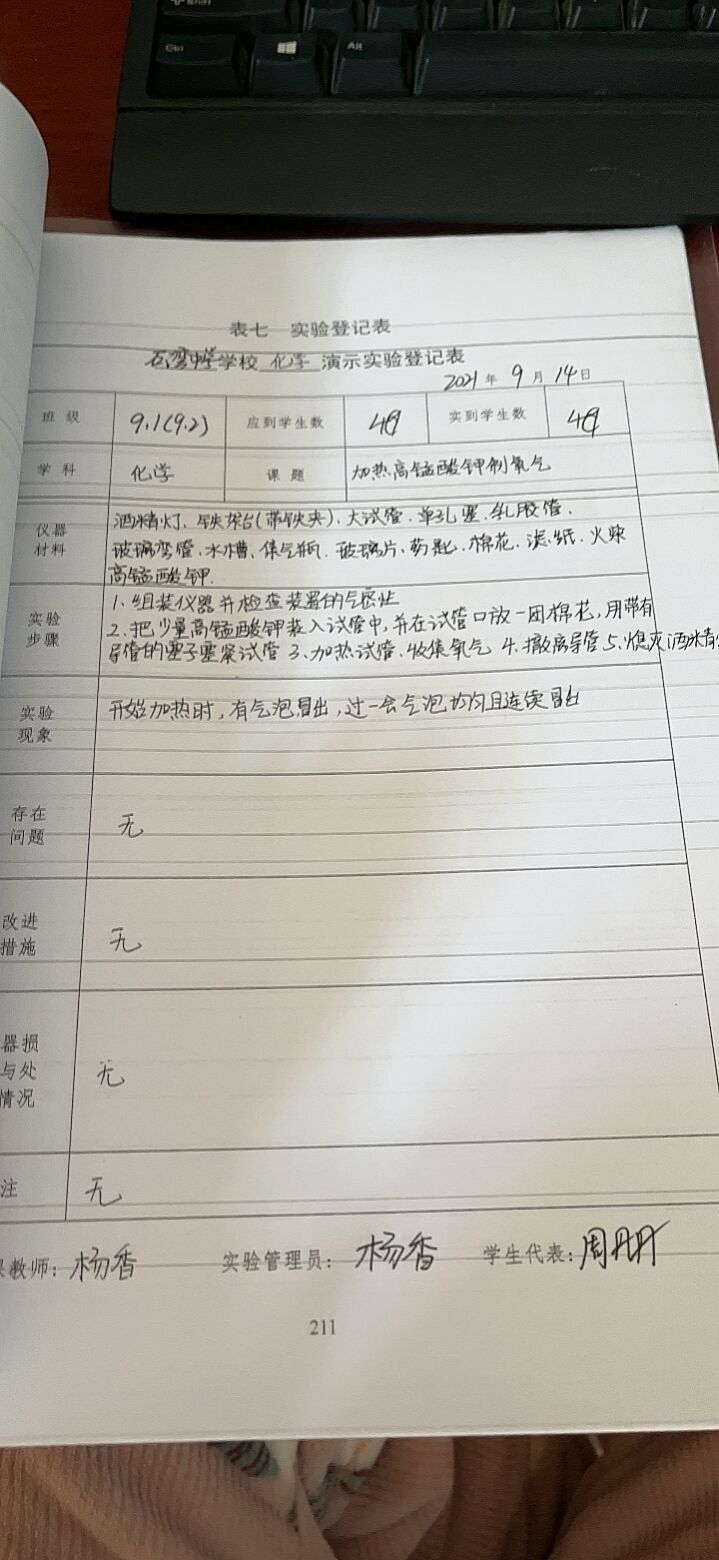 Ctrl
Alt
表七 实验登记表
石湾中学学校 化学 演示实验登记表
2021 年 9 月 14 日
班 级 9.1(9.2) 应到学生数 49 实到学生数 49
学 科 化学 课 题 加热高锰酸钾制氧气
仪器
材料
酒精灯、铁架台(带铁夹)、大试管、单孔塞、乳胶管、
玻璃弯管、水槽、集气瓶、玻璃片、药匙、棉花、滤纸、火柴
高锰酸钾.
实验
步骤
1、组装仪器并检查装置的气密性
2、把少量高锰酸钾装入试管中,并在试管口放一团棉花,用带有
导管的塞子塞紧试管 3、加热试管、收集氧气 4、撤离导管 5、熄灭酒精
实验
现象
开始加热时,有气泡冒出,过一会气泡均匀且连续冒出
存在
问题
无
改进
措施
无
器损
与处
情况
无
注 无
教师: 杨香 实验管理员: 杨香 学生代表: 周丹丹
211